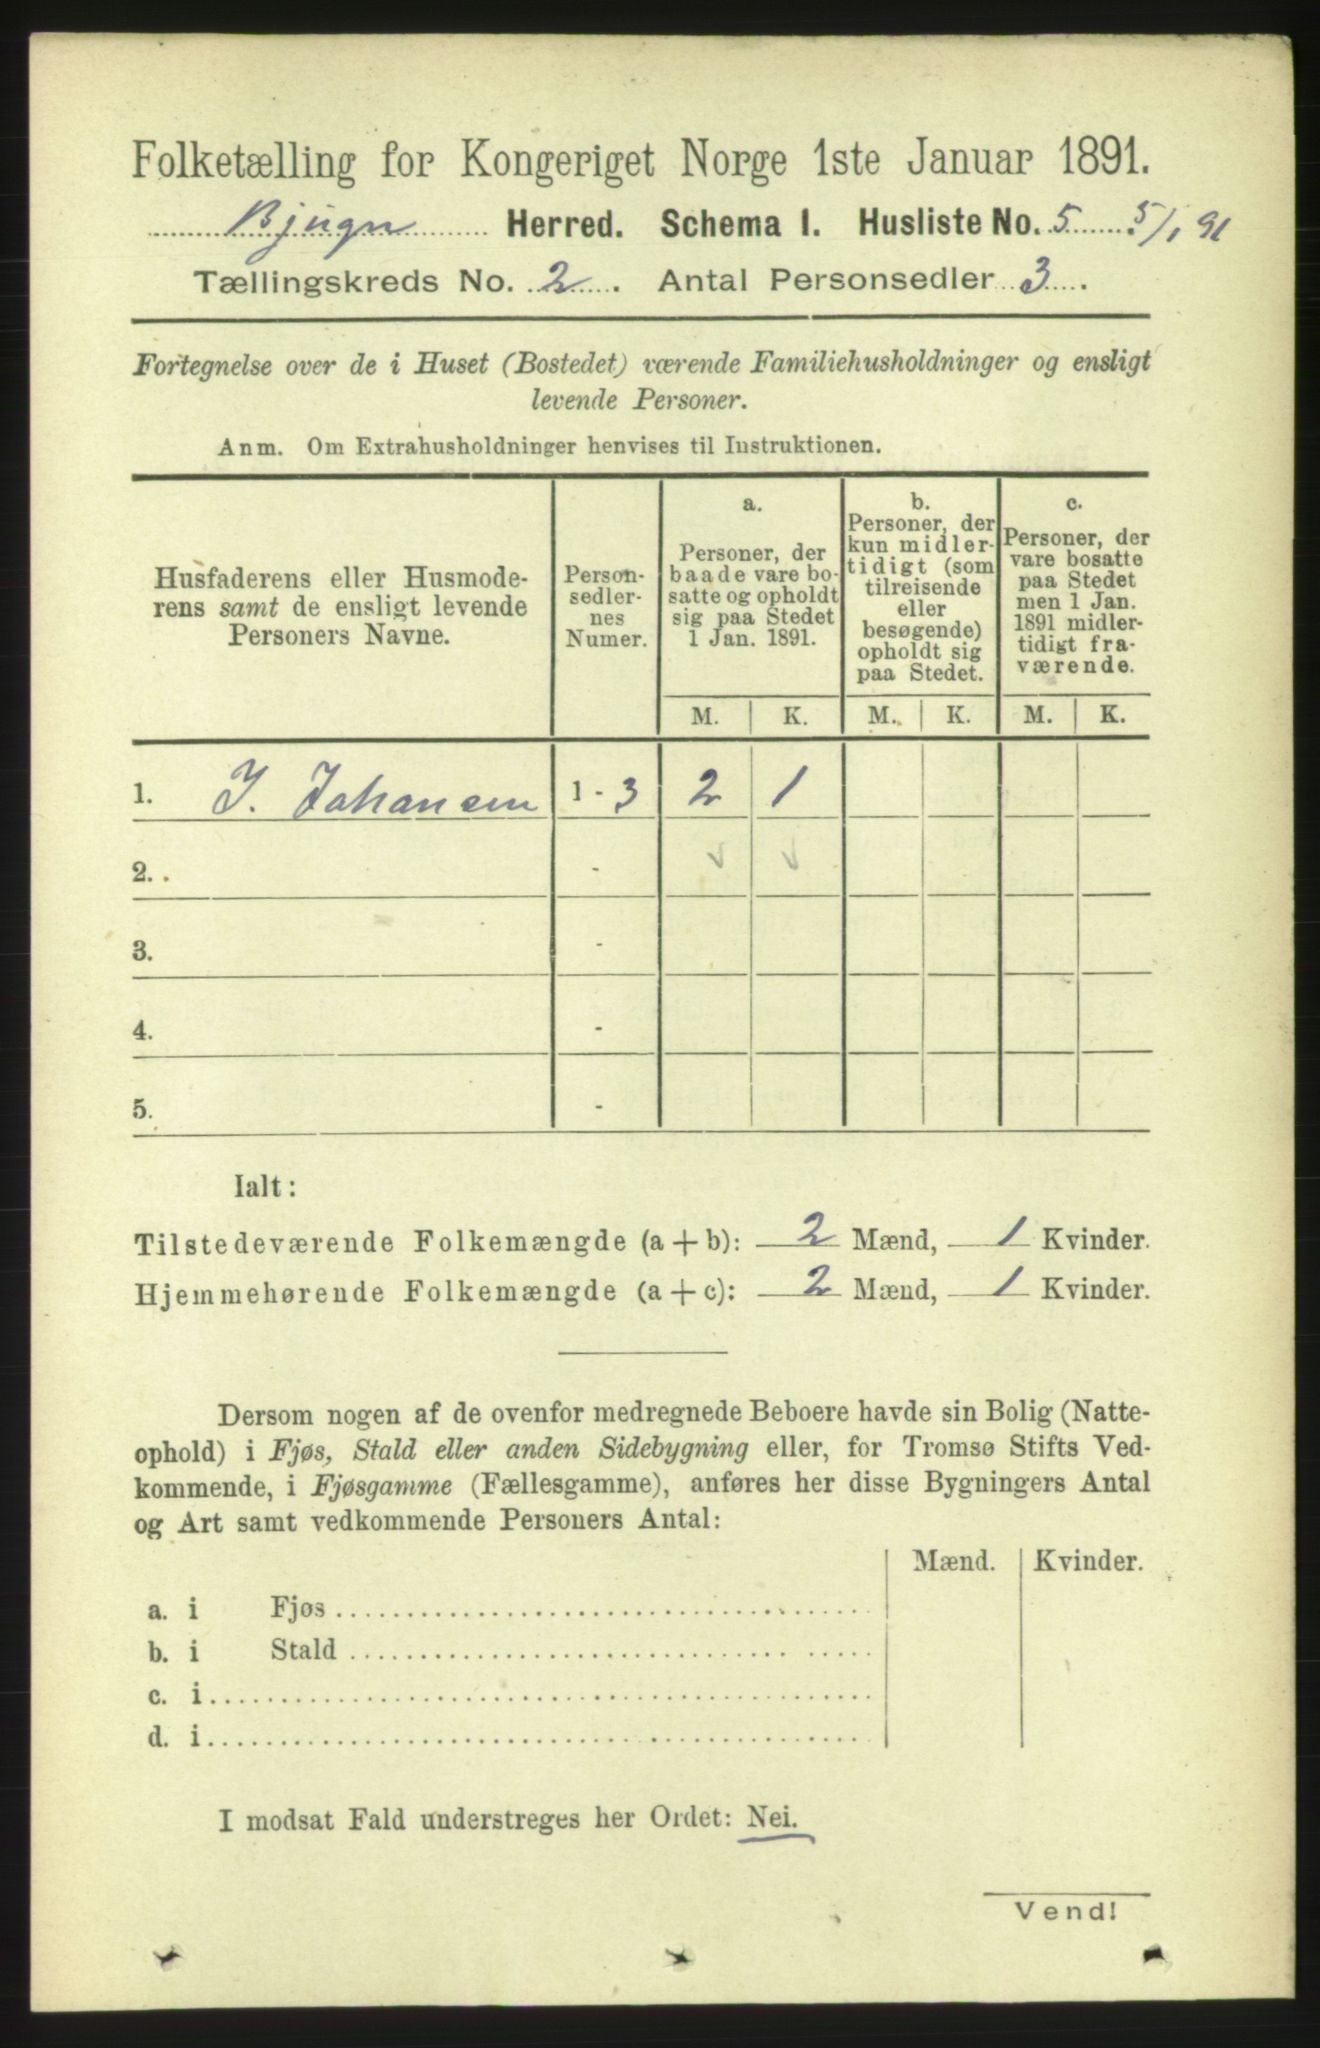 Folketælling for Kongeriget Norge 1ste Januar 1891.
Bjugn Herred. Schema I. Husliste No. 5 5/1 91
Tællingskreds No. 2. Antal Personsedler 3.
Fortegnelse over de i Huset (Bostedet) værende Familiehusholdninger og ensligt
levende Personer.
Anm. Om Extrahusholdninger henvises til Instruktionen.
Husfaderens eller Husmode-
rens samt de ensligt levende
Personers Navne.
Person-
sedler-
nes
Numer.
a.
Personer, der
baade vare bo-
satte og opholdt
sig paa Stedet
1 Jan. 1891.
b.
Personer, der
kun midler-
tidigt (som
tilreisende
eller
besøgende)
opholdt sig
paa Stedet.
c.
Personer, der
vare bosatte
paa Stedet
men 1 Jan.
1891 midler-
tidigt fra-
værende.
M. K. M. K. M. K.
1. I. Johansen 1 - 3 2 1
2. - ✓ ✓
3. -
4. -
5. -
Ialt:
Tilstedeværende Folkemængde (a + b): 2 Mænd, 1 Kvinder.
Hjemmehørende Folkemængde (a + c): 2 Mænd, 1 Kvinder.
Dersom nogen af de ovenfor medregnede Beboere havde sin Bolig (Natte-
ophold) i Fjøs, Stald eller anden Sidebygning eller, for Tromsø Stifts Ved-
kommende, i Fjøsgamme (Fællesgamme), anføres her disse Bygningers Antal
og Art samt vedkommende Personers Antal:
Mænd. Kvinder.
a. i Fjøs
b. i Stald
c. i
d. i
I modsat Fald understreges her Ordet: Nei.
Vend!